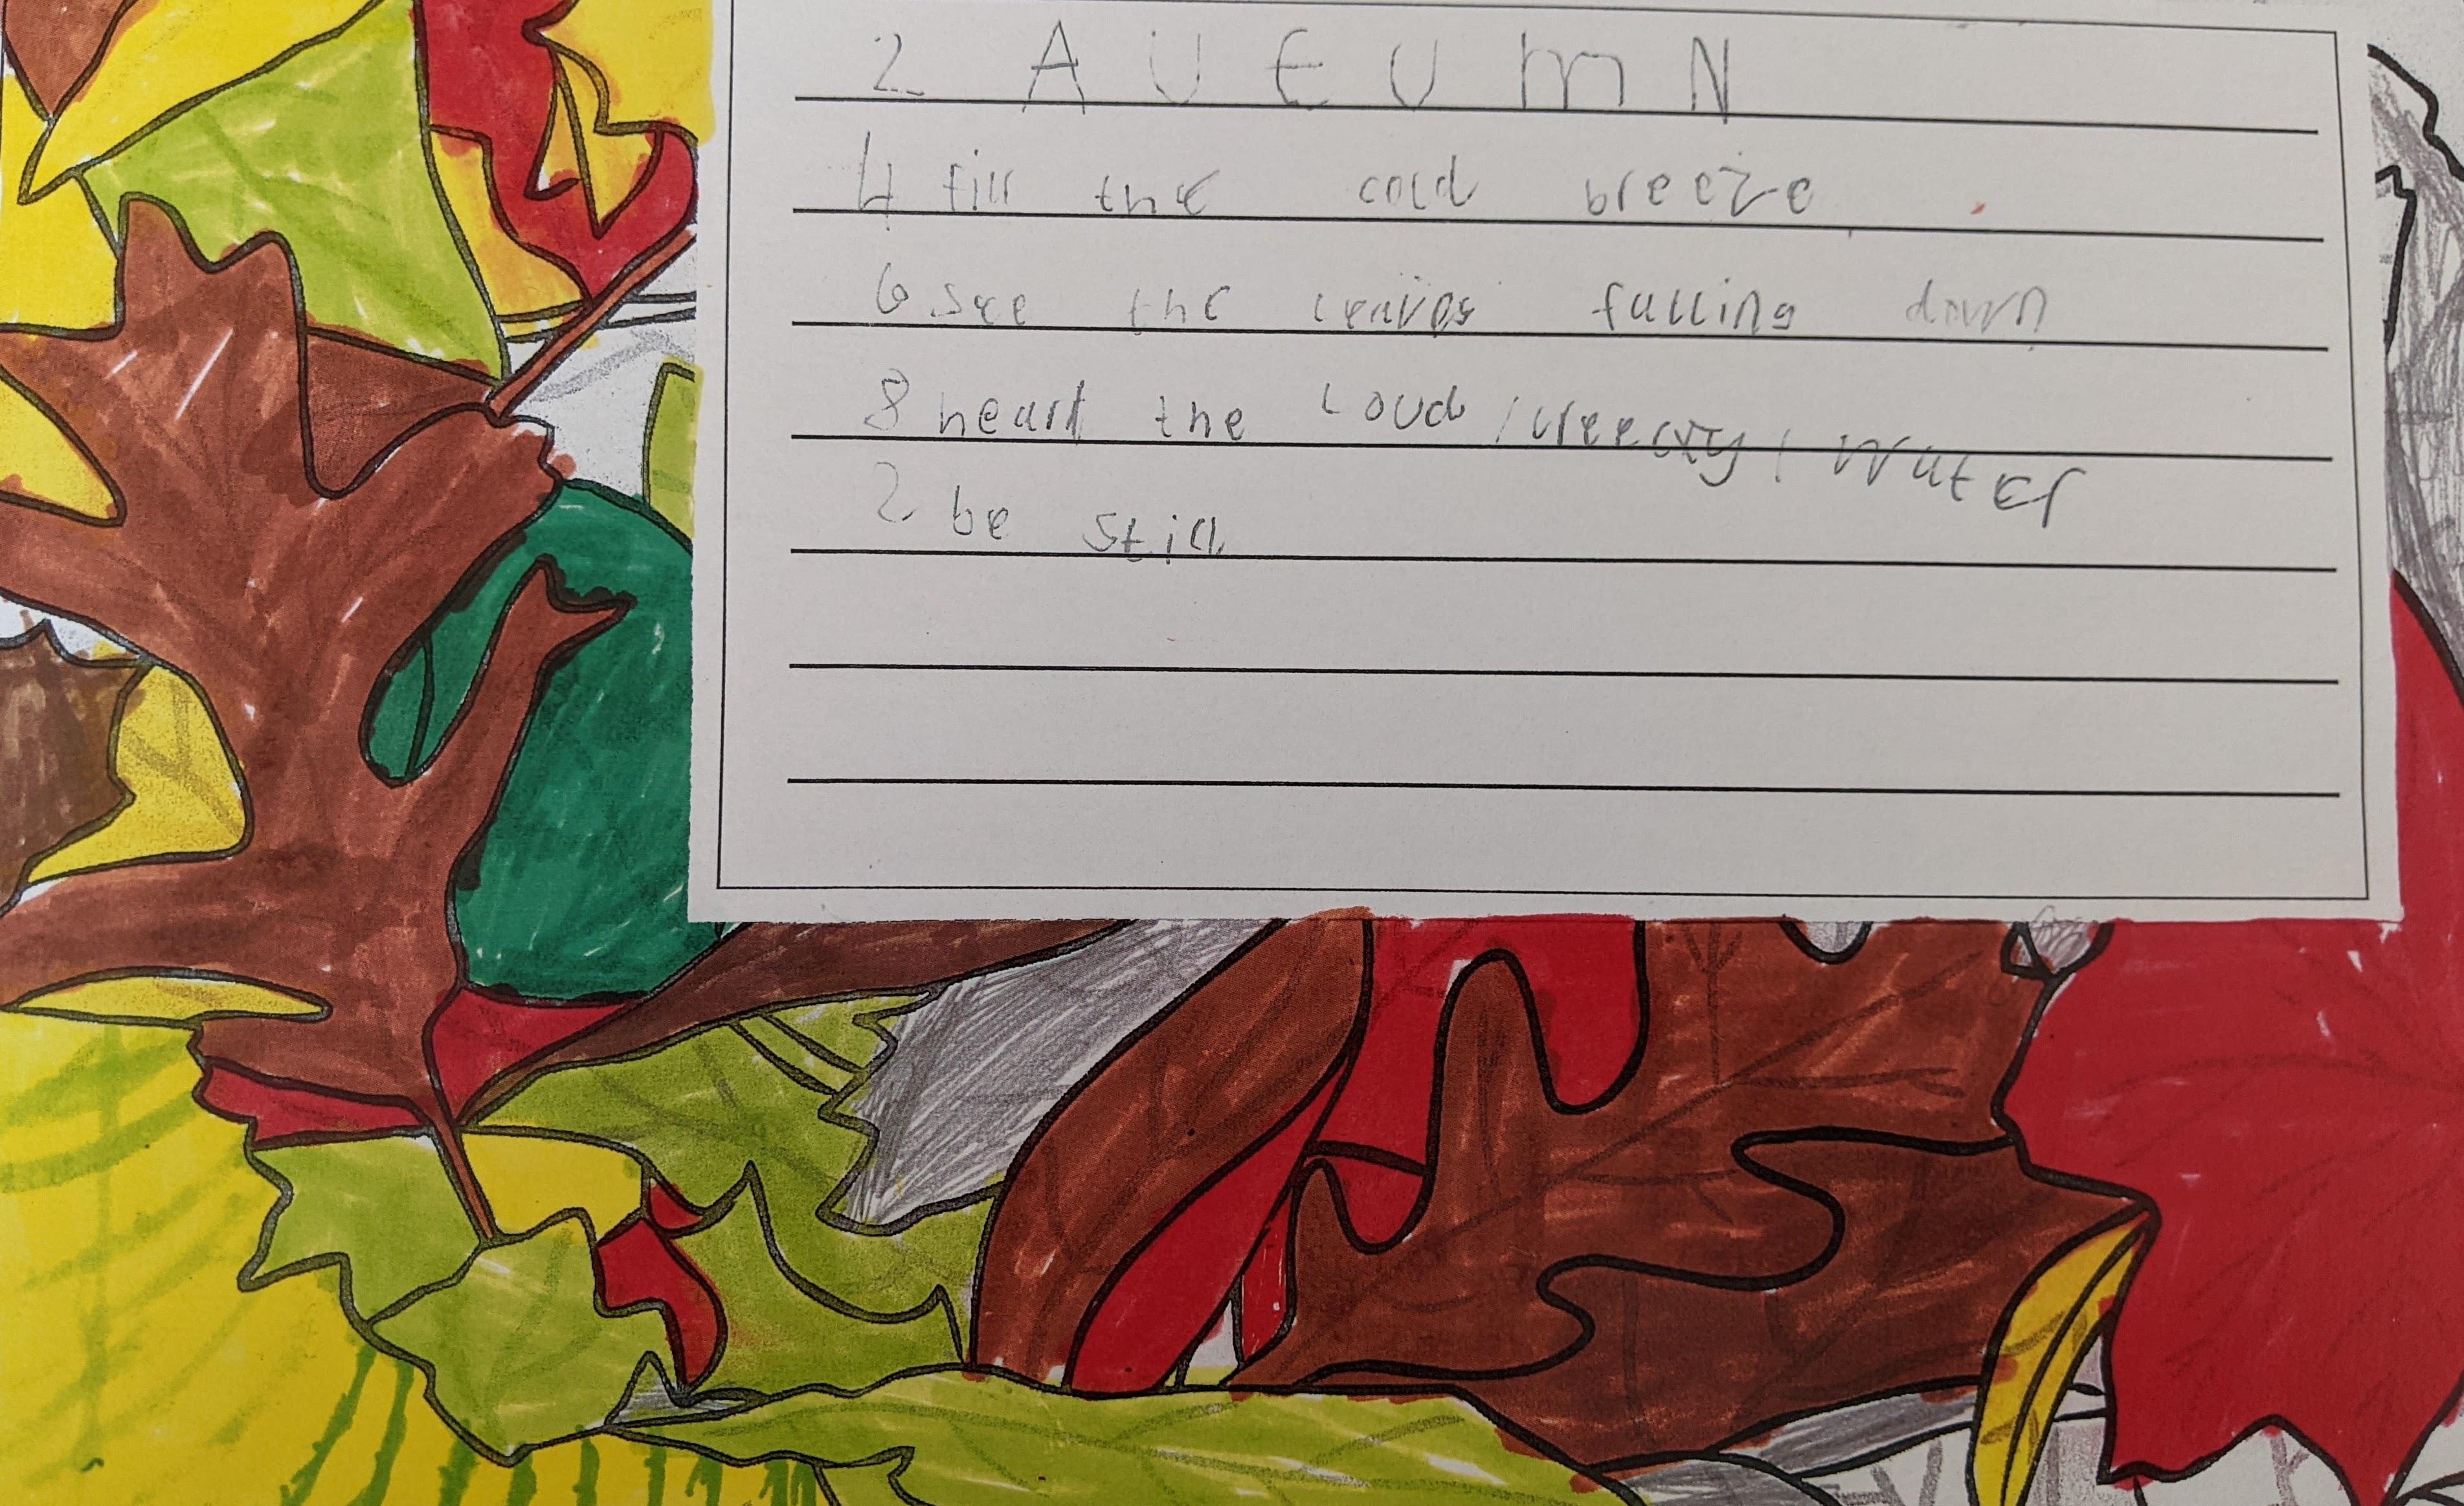 2 A U E U m N
4 fill the cold breeze
6 see the leaves falling down
8 heard the Loud, , Water
2 be still